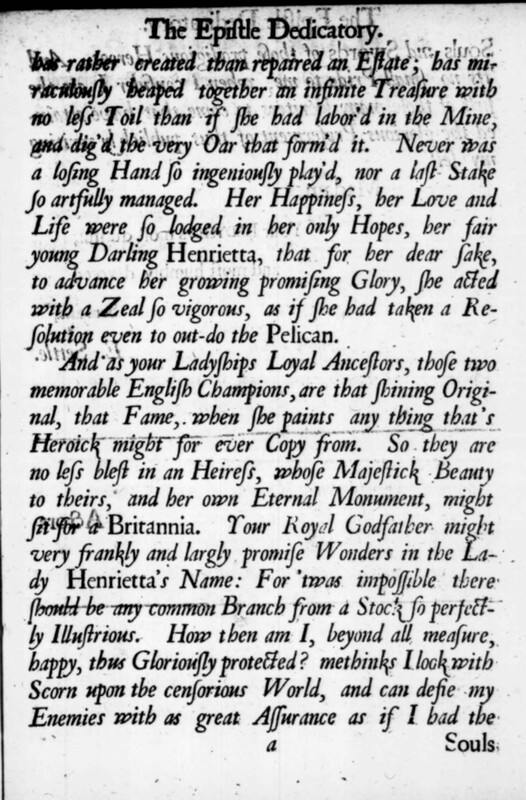 The Epiſtle Dedicatory.
has rather created than repaired an Eſtate; has mi-
raculouſly heaped together an infinite Treaſure with
no leſs Toil than if ſhe had labor'd in the Mine,
and dig'd the very Oar that form'd it. Never was
a loſing Hand ſo ingeniouſly play'd, nor a laſt Stake
ſo artfully managed. Her Happineſs, her Love and
Life were ſo lodged in her only Hopes, her fair
young Darling Henrietta, that for her dear ſake,
to advance her growing promiſing Glory, ſhe acted
with a Zeal ſo vigorous, as if ſhe had taken a Re-
ſolution even to out-do the Pelican.
And as your Ladyſhips Loyal Anceſtors, thoſe two
memorable Engliſh Champions, are that ſhining Origi-
nal, that Fame, when ſhe paints any thing that's
Heroick might for ever Copy from. So they are
no leſs bleſt in an Heireſs, whoſe Majeſtick Beauty
to theirs, and her own Eternal Monument, might
ſit for a Britannia. Your Royal Godfather might
very frankly and largly promiſe Wonders in the La-
dy Henrietta's Name: For 'twas impoſſible there
ſhould be any common Branch from a Stock ſo perfect-
ly Illuſtrious. How then am I, beyond all meaſure,
happy, thus Gloriouſly protected? methinks I lock with
Scorn upon the cenſorious World, and can defie my
Enemies with as great Aſſurance as if I had the
a Souls